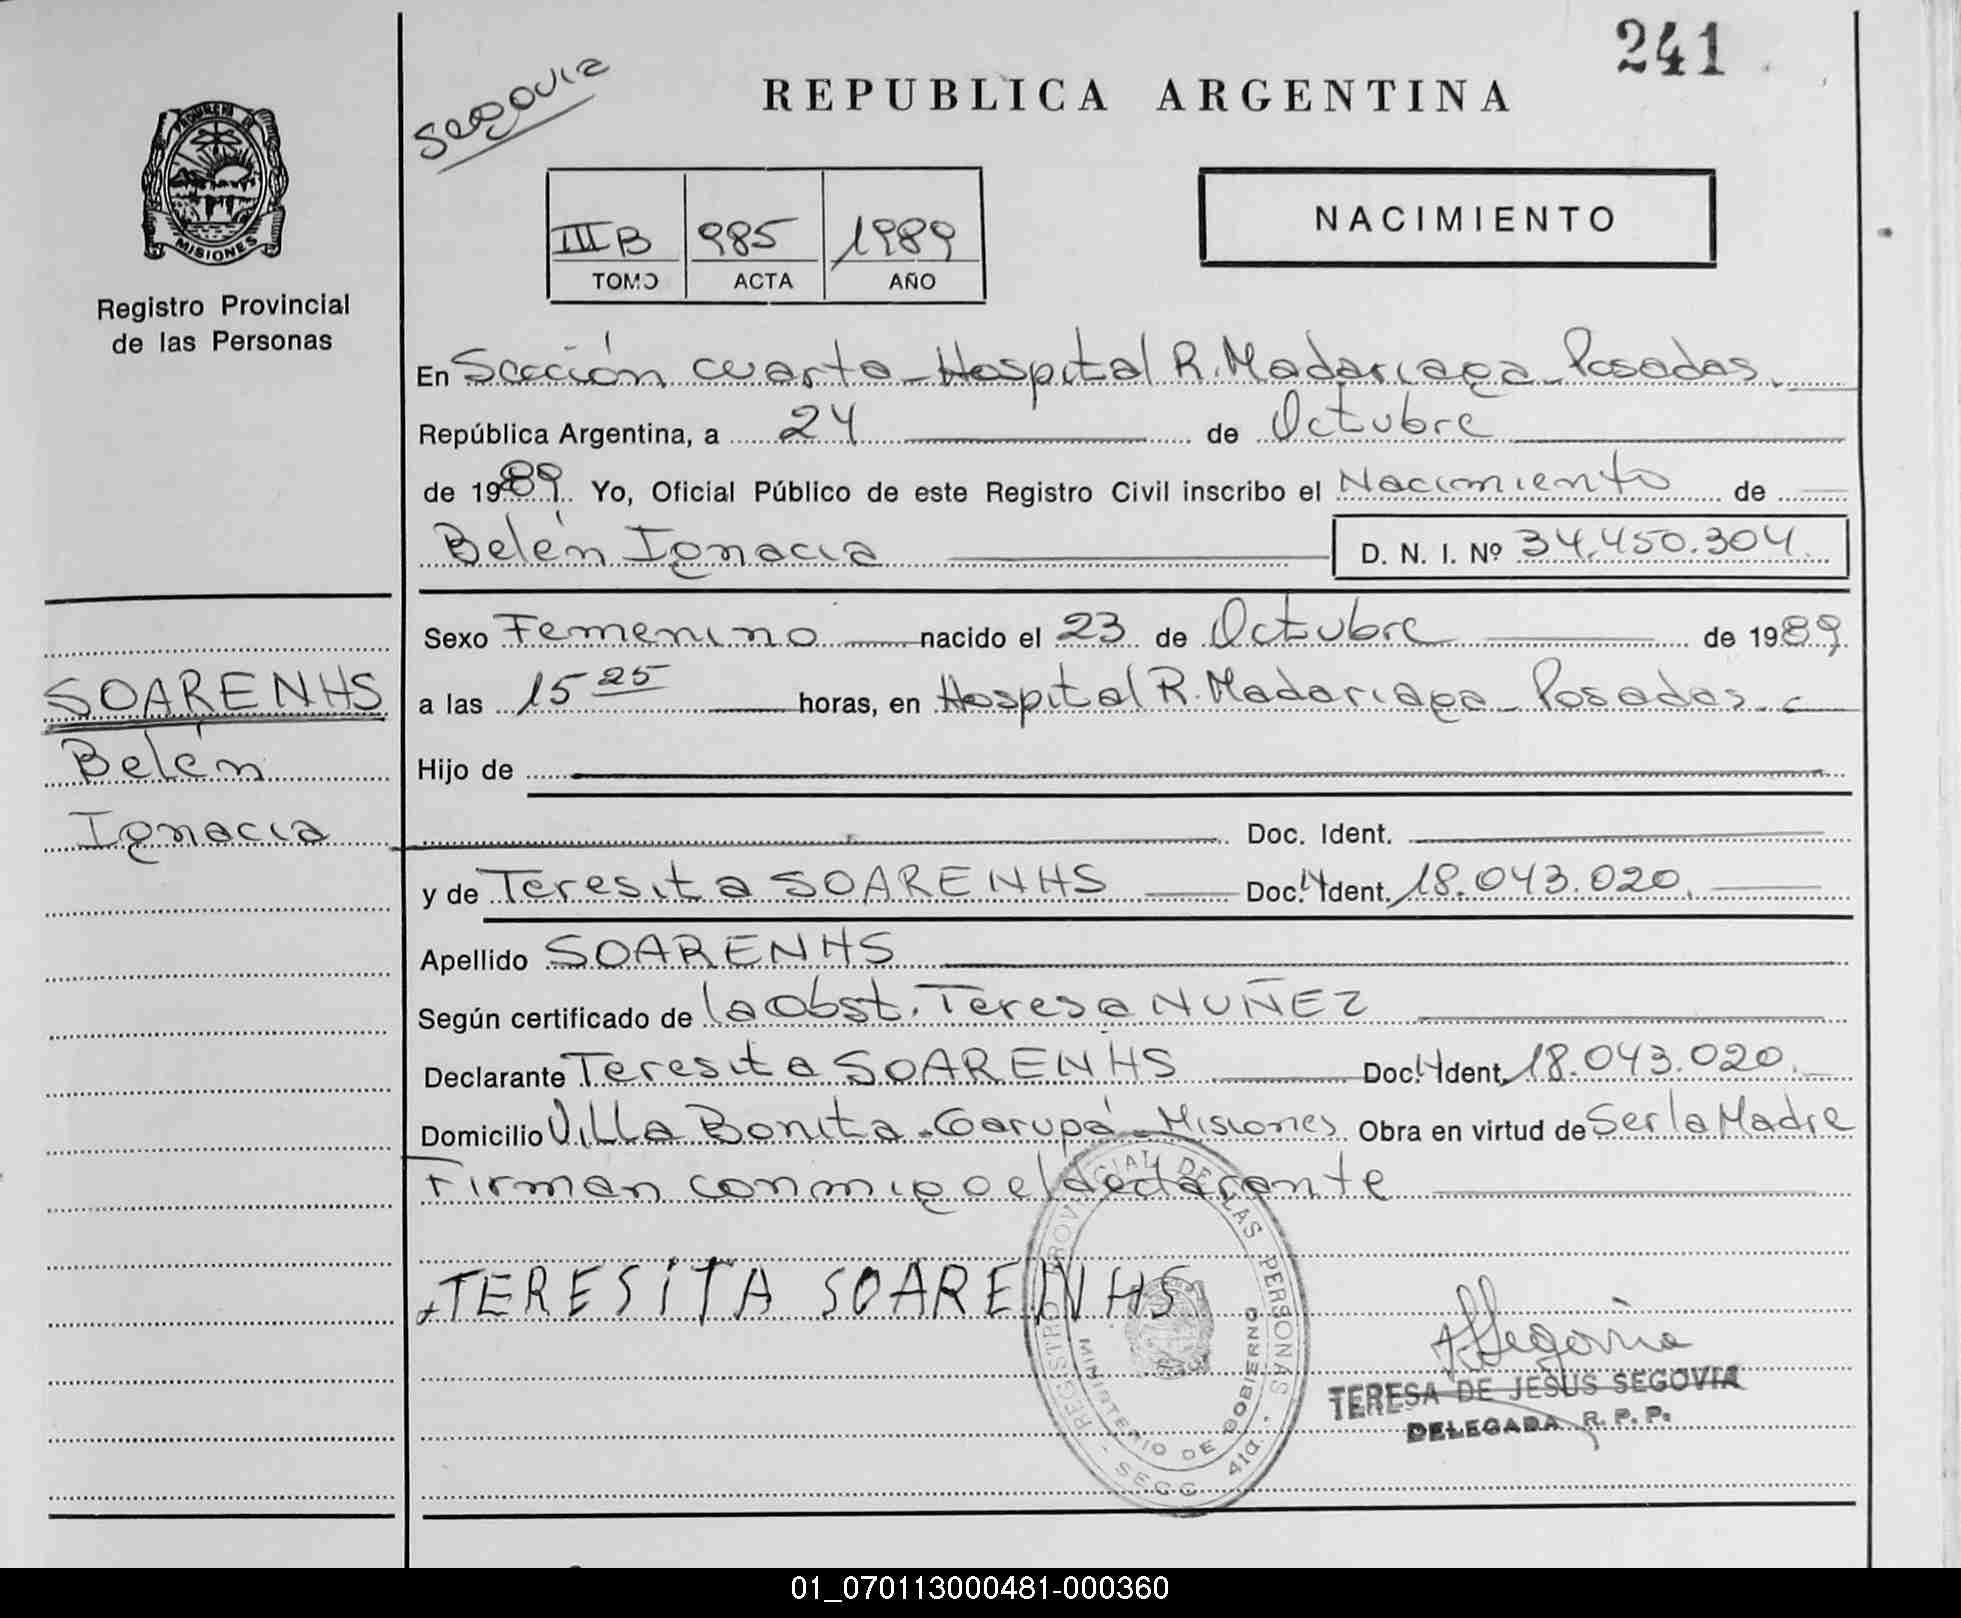 241
Segovia
REPUBLICA ARGENTINA
PROVINCIA DE
MISIONES
Registro Provincial
de las Personas
III B 985 1989
TOMO ACTA AÑO
NACIMIENTO
En Sección cuarta - Hospital R. Madariaga - Posadas.
República Argentina, a 24 de Octubre
de 1989. Yo, Oficial Público de este Registro Civil inscribo el Nacimiento de
Belén Ignacia D. N. I. Nº 34.450.304.
Sexo Femenino nacido el 23 de Octubre de 1989.
SOARENHS
Belén
Ignacia
a las 15 25 horas, en Hospital R. Madariaga - Posadas.
Hijo de
Doc. Ident.
y de Teresita SOARENHS Doc. Ident. 18.043.020.
Apellido SOARENHS
Según certificado de la Obst. Teresa NUÑEZ
Declarante Teresita SOARENHS Doc. Ident. 18.043.020.
Domicilio Villa Bonita - Garupá - Misiones Obra en virtud de Ser la Madre
Firman conmigo el declarante
TERESITA SOARENHS
REGISTRO PROVINCIAL DE LAS PERSONAS
MINISTERIO DE GOBIERNO
SECC 4ta.
Segovia
TERESA DE JESUS SEGOVIA
DELEGADA R. P. P.
01_070113000481-000360